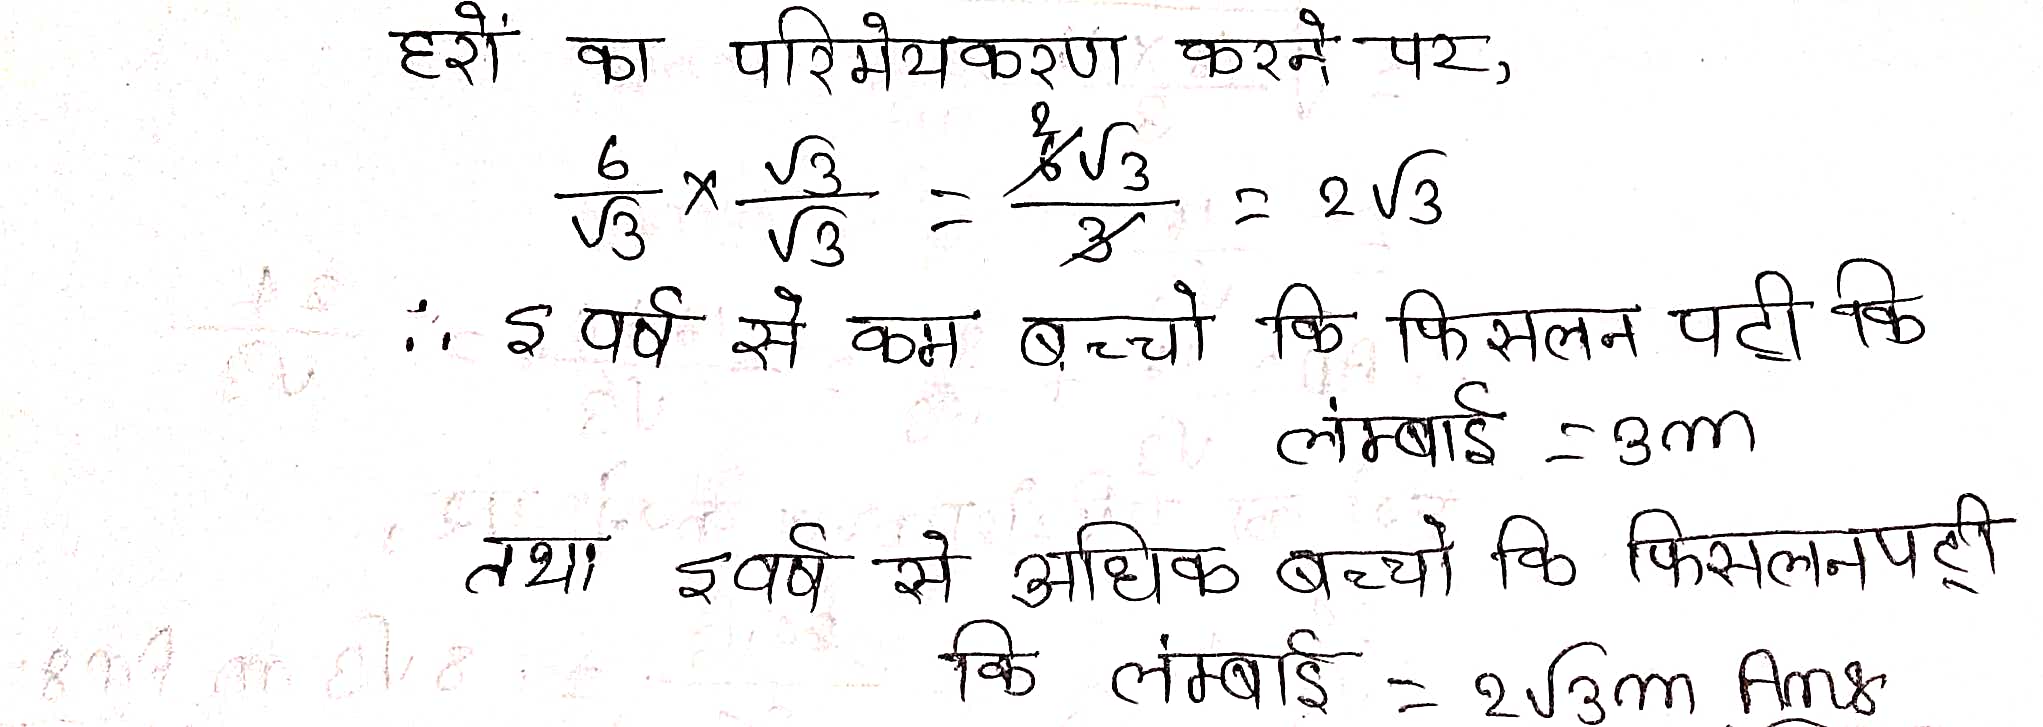 हरों का परिमेयकरण करने पर,
6/√3 × √3/√3 = 6√3/3 = 2√3
∴ 5 वर्ष से कम बच्चो कि फिसलन पटी कि
लंम्बाई = 3m
तथा 5 वर्ष से अधिक बच्चो कि फिसलनपट्टी
कि लंम्बाई = 2√3m Ans